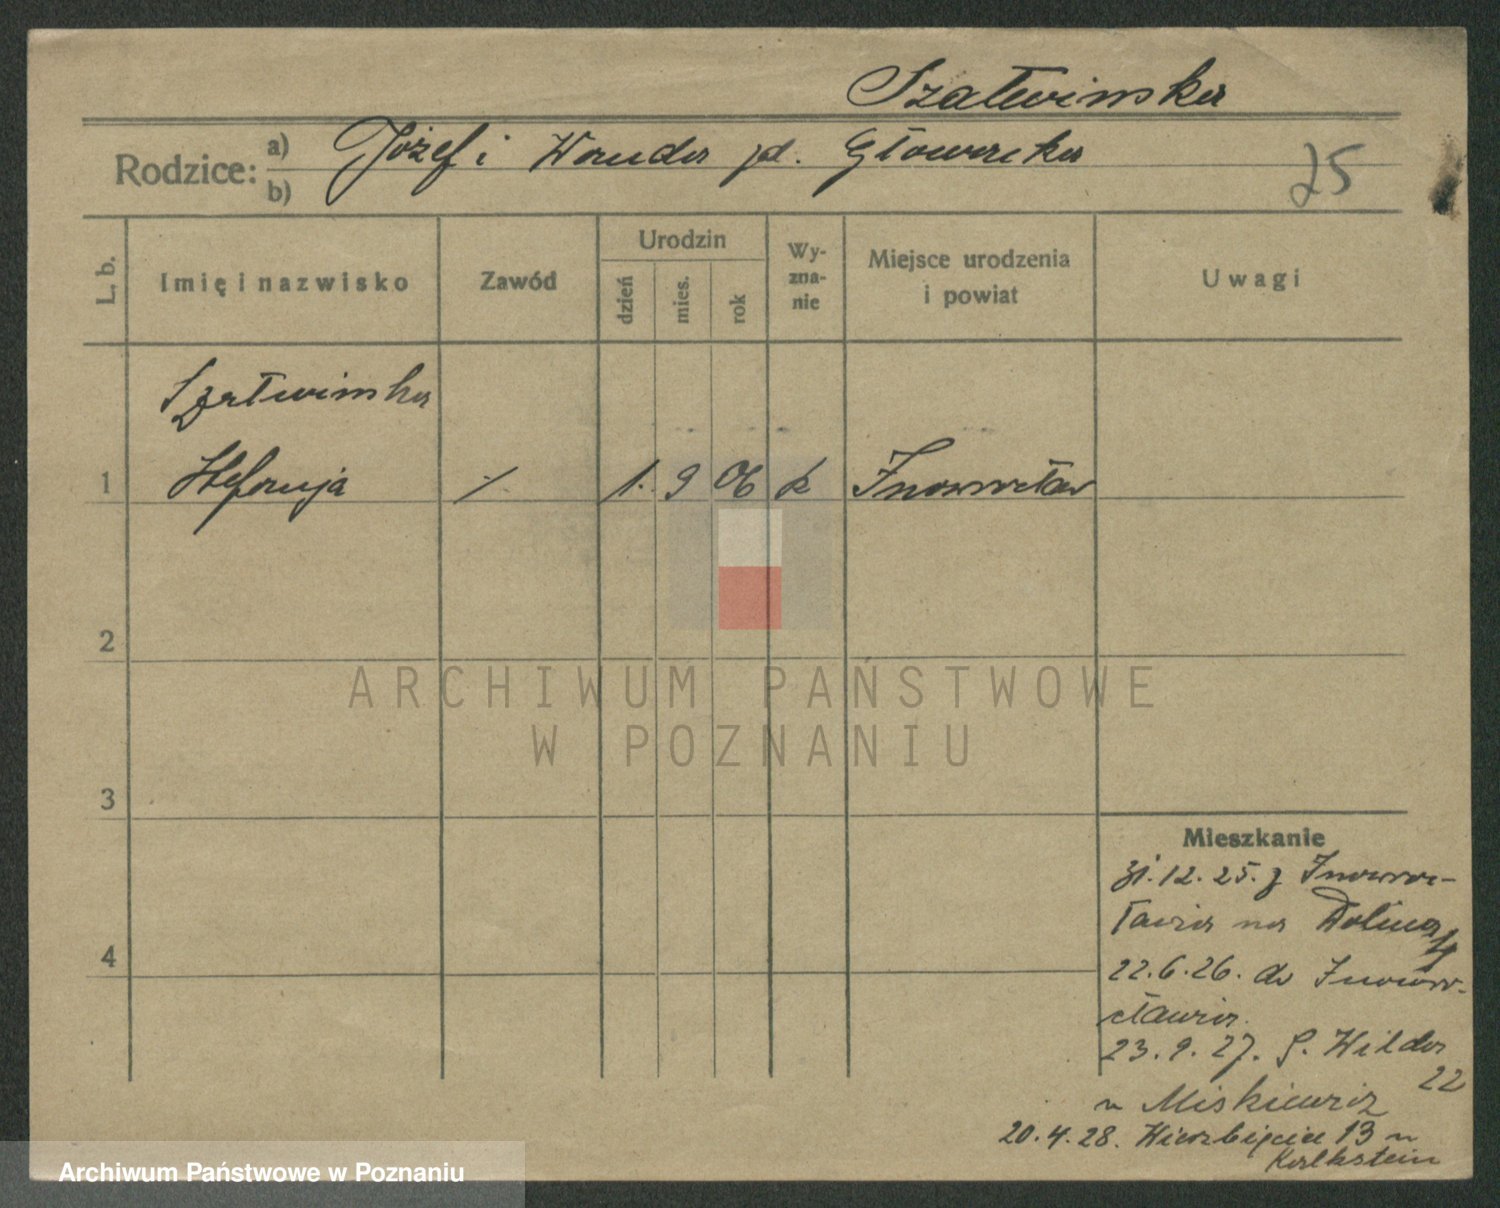 Szałwinska
Rodzice: a) Józef i Wanda zd. Głowacka
b)
25
L. b.
Imię i nazwisko
Zawód
Urodzin
dzień
mies.
rok
Wy-
zna-
nie
Miejsce urodzenia
i powiat
Uwagi
Szałwinska
1 Stefanja ·/. 1. 9 06 k Inowrocław
2
ARCHIWUM PAŃSTWOWE
W POZNANIU
3
Mieszkanie
31.12.25. z Inowroc-
ławia na Dolina
4
22.6.26. do Inowro-
cławia.
23.9.27. G. Wilda
22
u Miskiewicz
20.4.28. Wierzbięcice 13 u
Kalkstein
Archiwum Państwowe w Poznaniu